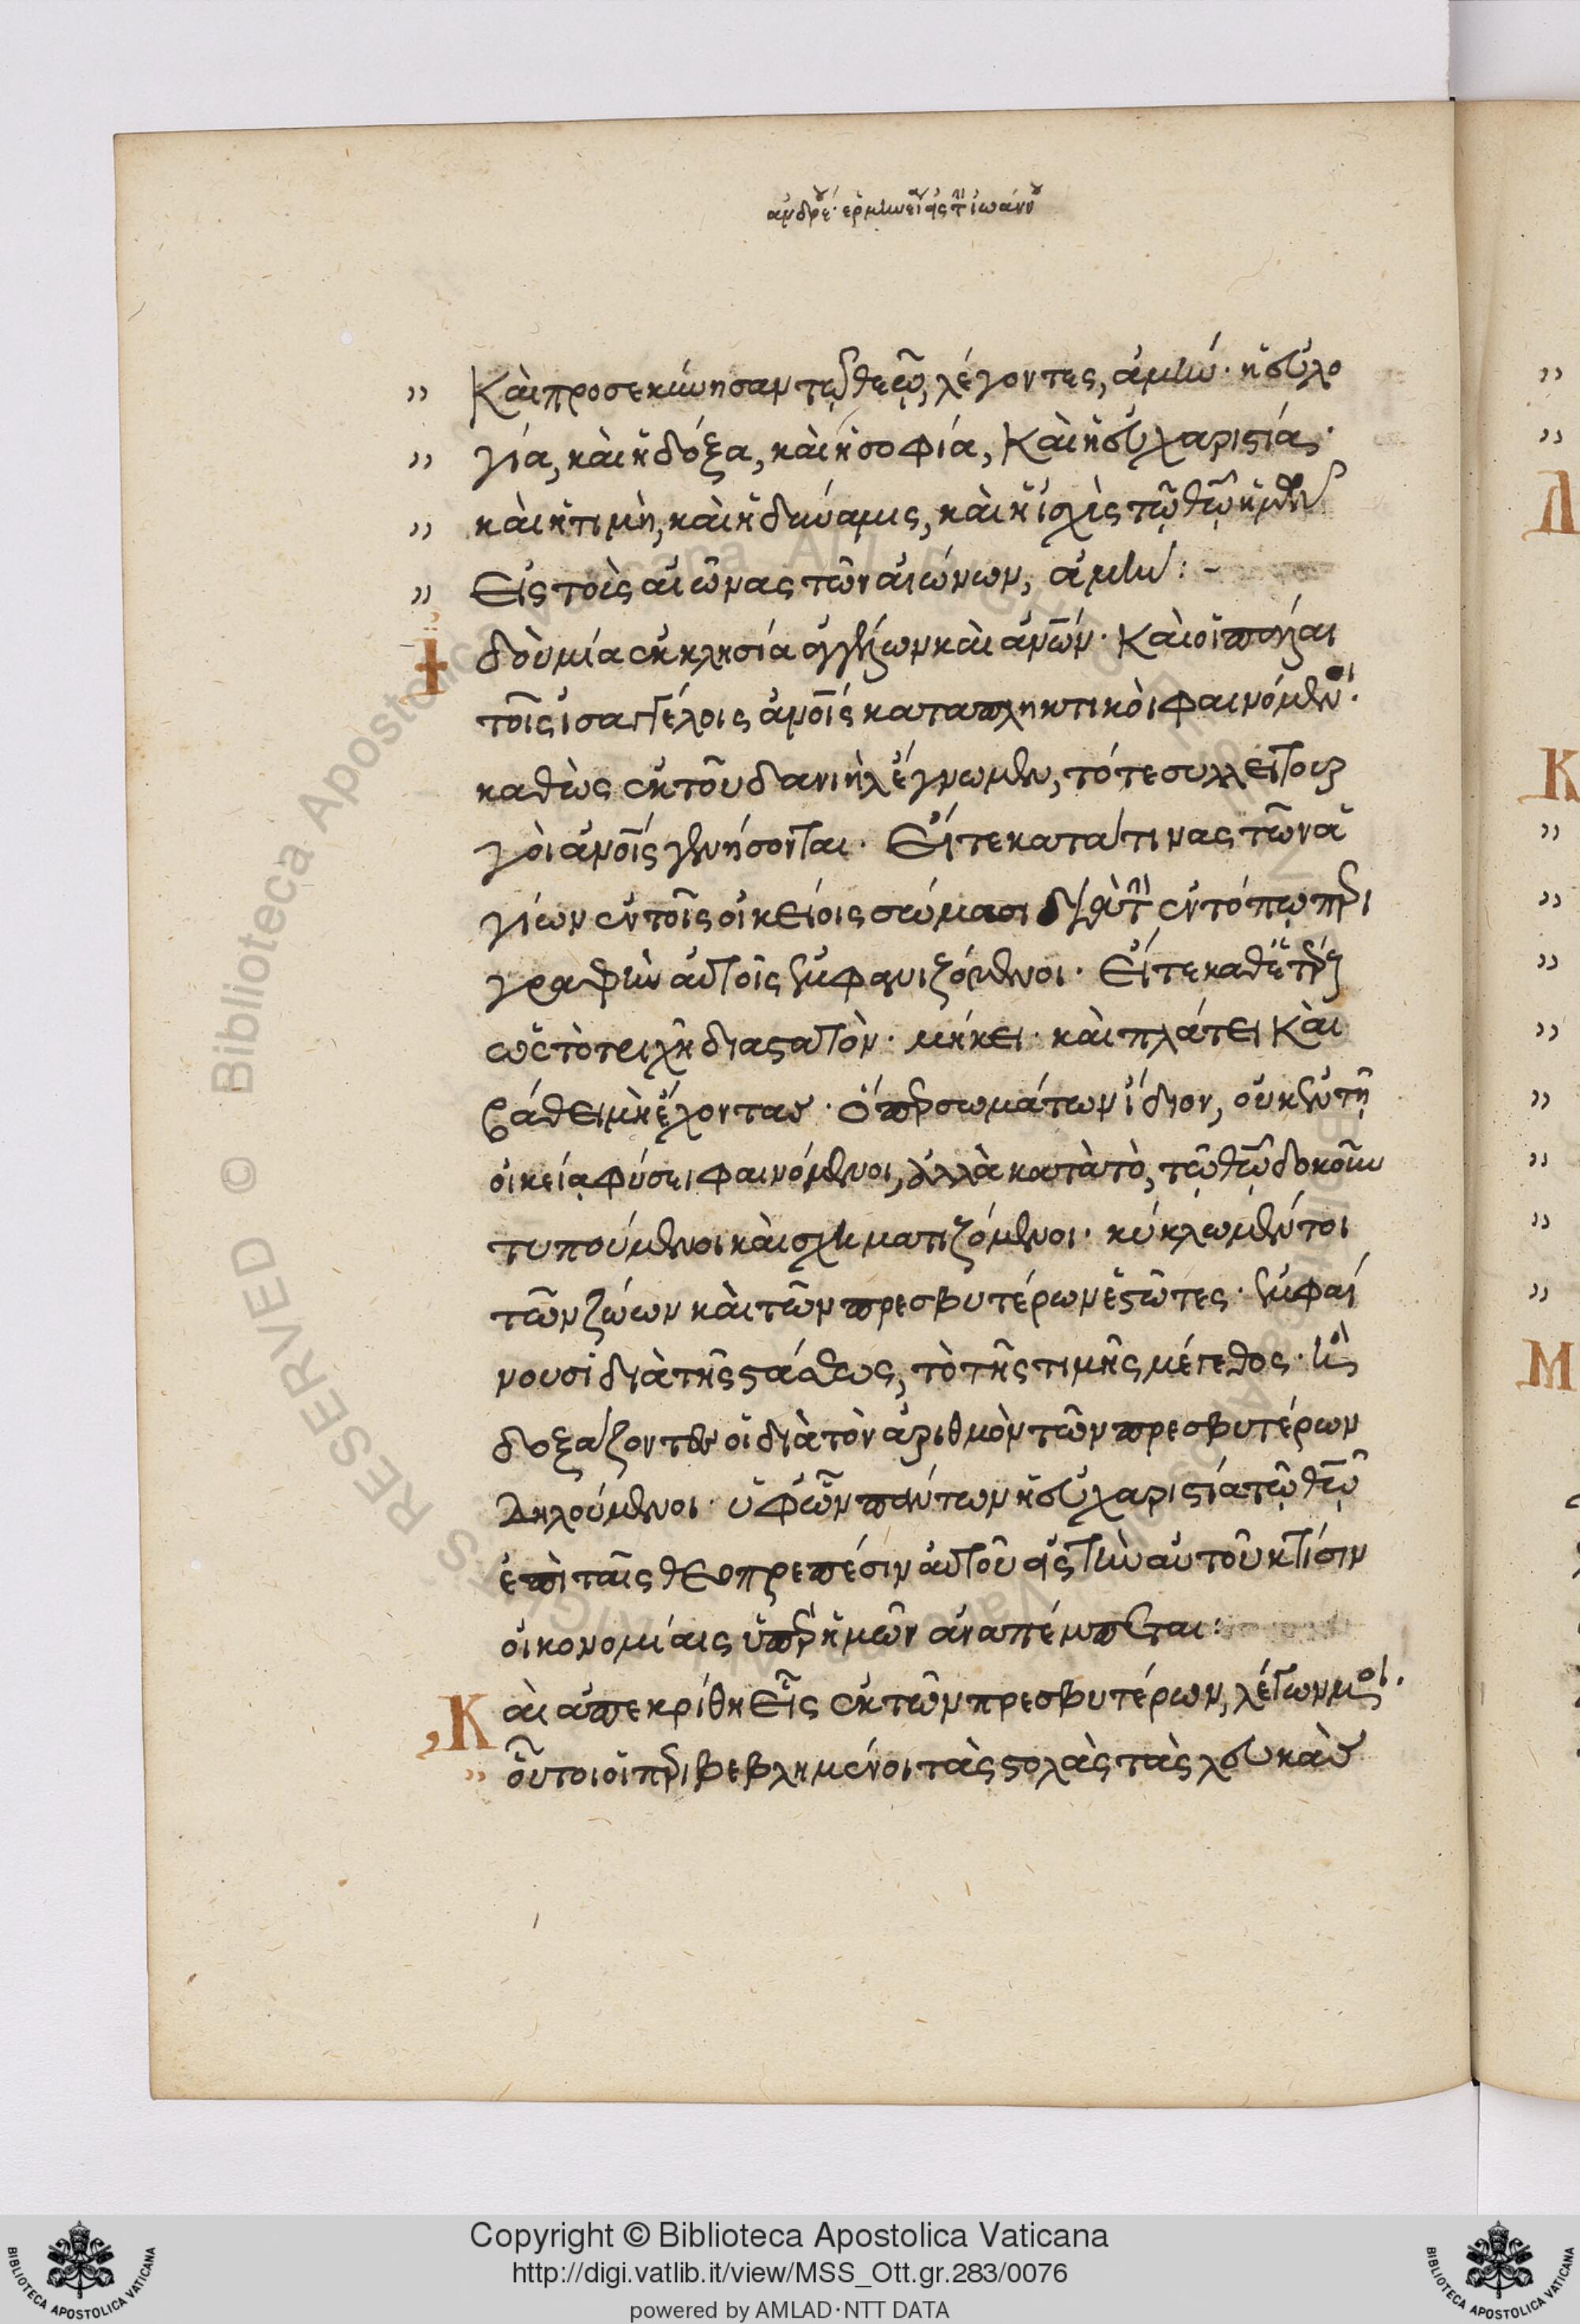 ἀνδρέου ἑρμηνεία εἰς τὴν ἰωάννου
Καὶ προσεκύνησαν τῷ θεῷ, λέγοντες, ἀμήν· ἡ εὐλο
γία, καὶ ἡ δόξα, καὶ ἡ σοφία, Καὶ ἡ εὐχαριστία·
καὶ ἡ τιμὴ, καὶ ἡ δύναμις, καὶ ἡ ἰσχὺς τῷ θῶ ἡμῶν
Εἰς τοὺς αἰῶνας τῶν αἰώνων, ἀμήν:-
Ἰδοὺ μία ἐκκλησία ἀγγέλων καὶ ἀνων· καὶ οἱ
τοῖς ἰσαγγέλοις ἀνοις καταπληκτικοὶ φαινόμενοι·
καθὼς ἐκ τοῦ δανιὴλ ἔγνωμεν, τότε
γοι ἀνοις γενήσονται. Εἴτε κατά τινας τῶν ἁ
γίων ἐν τοῖς οἰκείοις σώμασι διὰ τὴν ἐν τόπῳ περι
γραφὴν αὐτοῖς ἐμφανιζόμενοι. Εἴτε καθ' ἑτέρους
ὡς τὸ τριχῆ διαστατὸν· μήκει· καὶ πλάτει Καὶ
βάθει μὴ ἔχοντας· ὅπερ σωμάτων ἴδιον, οὐκ ἐν τῇ
οἰκείᾳ φύσει φαινόμενοι, ἀλλὰ κατὰ τὸ, τῷ θῶ δοκοῦν
τυπούμενοι καὶ σχηματιζόμενοι. κύκλῳ μέντοι
τῶν ζώων καὶ τῶν πρεσβυτέρων ἑστῶτες· ἐμφαί
νουσι διὰ τῆς στάσεως, τὸ τῆς τιμῆς μέγεθος· καὶ
δοξάζονται οἱ διὰ τὸν ἀριθμὸν τῶν πρεσβυτέρων
Δηλούμενοι· ὑφ' ὧν πάντων ἡ εὐχαριστία τῷ θῶ
ἐπὶ ταῖς θεοπρεπέσιν αὐτοῦ εἰς τὴν αὐτοῦ κτίσιν
οἰκονομίαις ὑπὲρ ἡμῶν ἀναπέμπεται:
Καὶ ἀπεκρίθη Εἷς ἐκ τῶν πρεσβυτέρων, λέγων μοι.
οὗτοι οἱ περιβεβλημένοι τὰς στολὰς τὰς λευκὰς
Copyright © Biblioteca Apostolica Vaticana
http://digi.vatlib.it/view/MSS_Ott.gr.283/0076
powered by AMLAD·NTT DATA